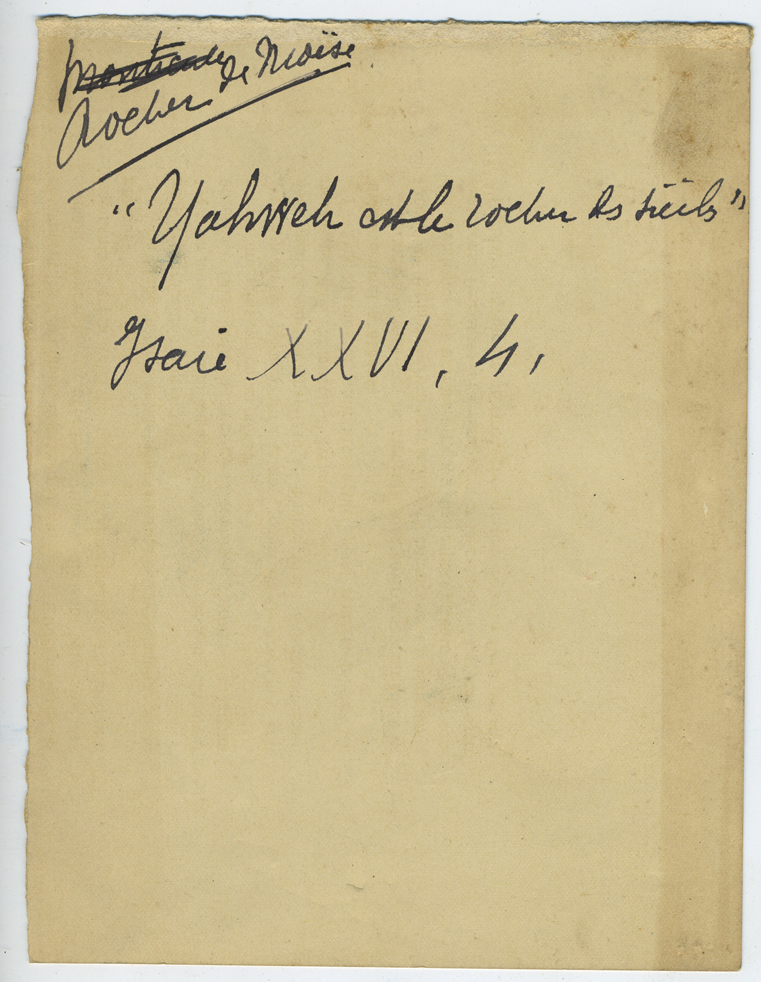 Rocher de Moïse
"Yahweh est le rocher des siècles"
Isaïe XXVI, 4,